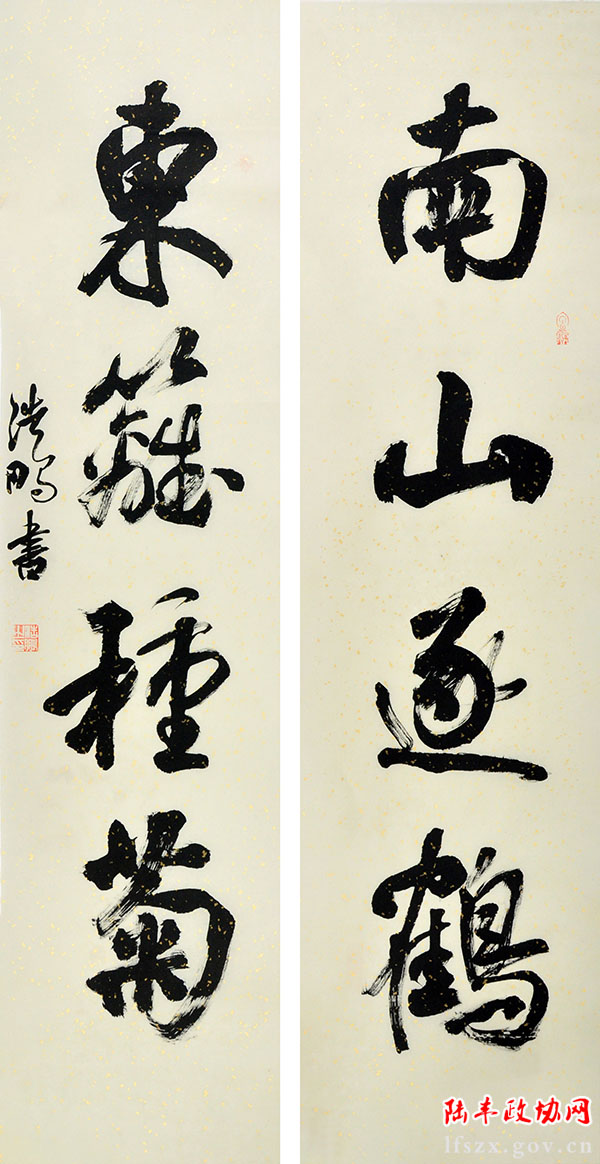 南山逐鹤
東籬種菊
浩鹏書
陆丰政协网
lfszx.gov.cn